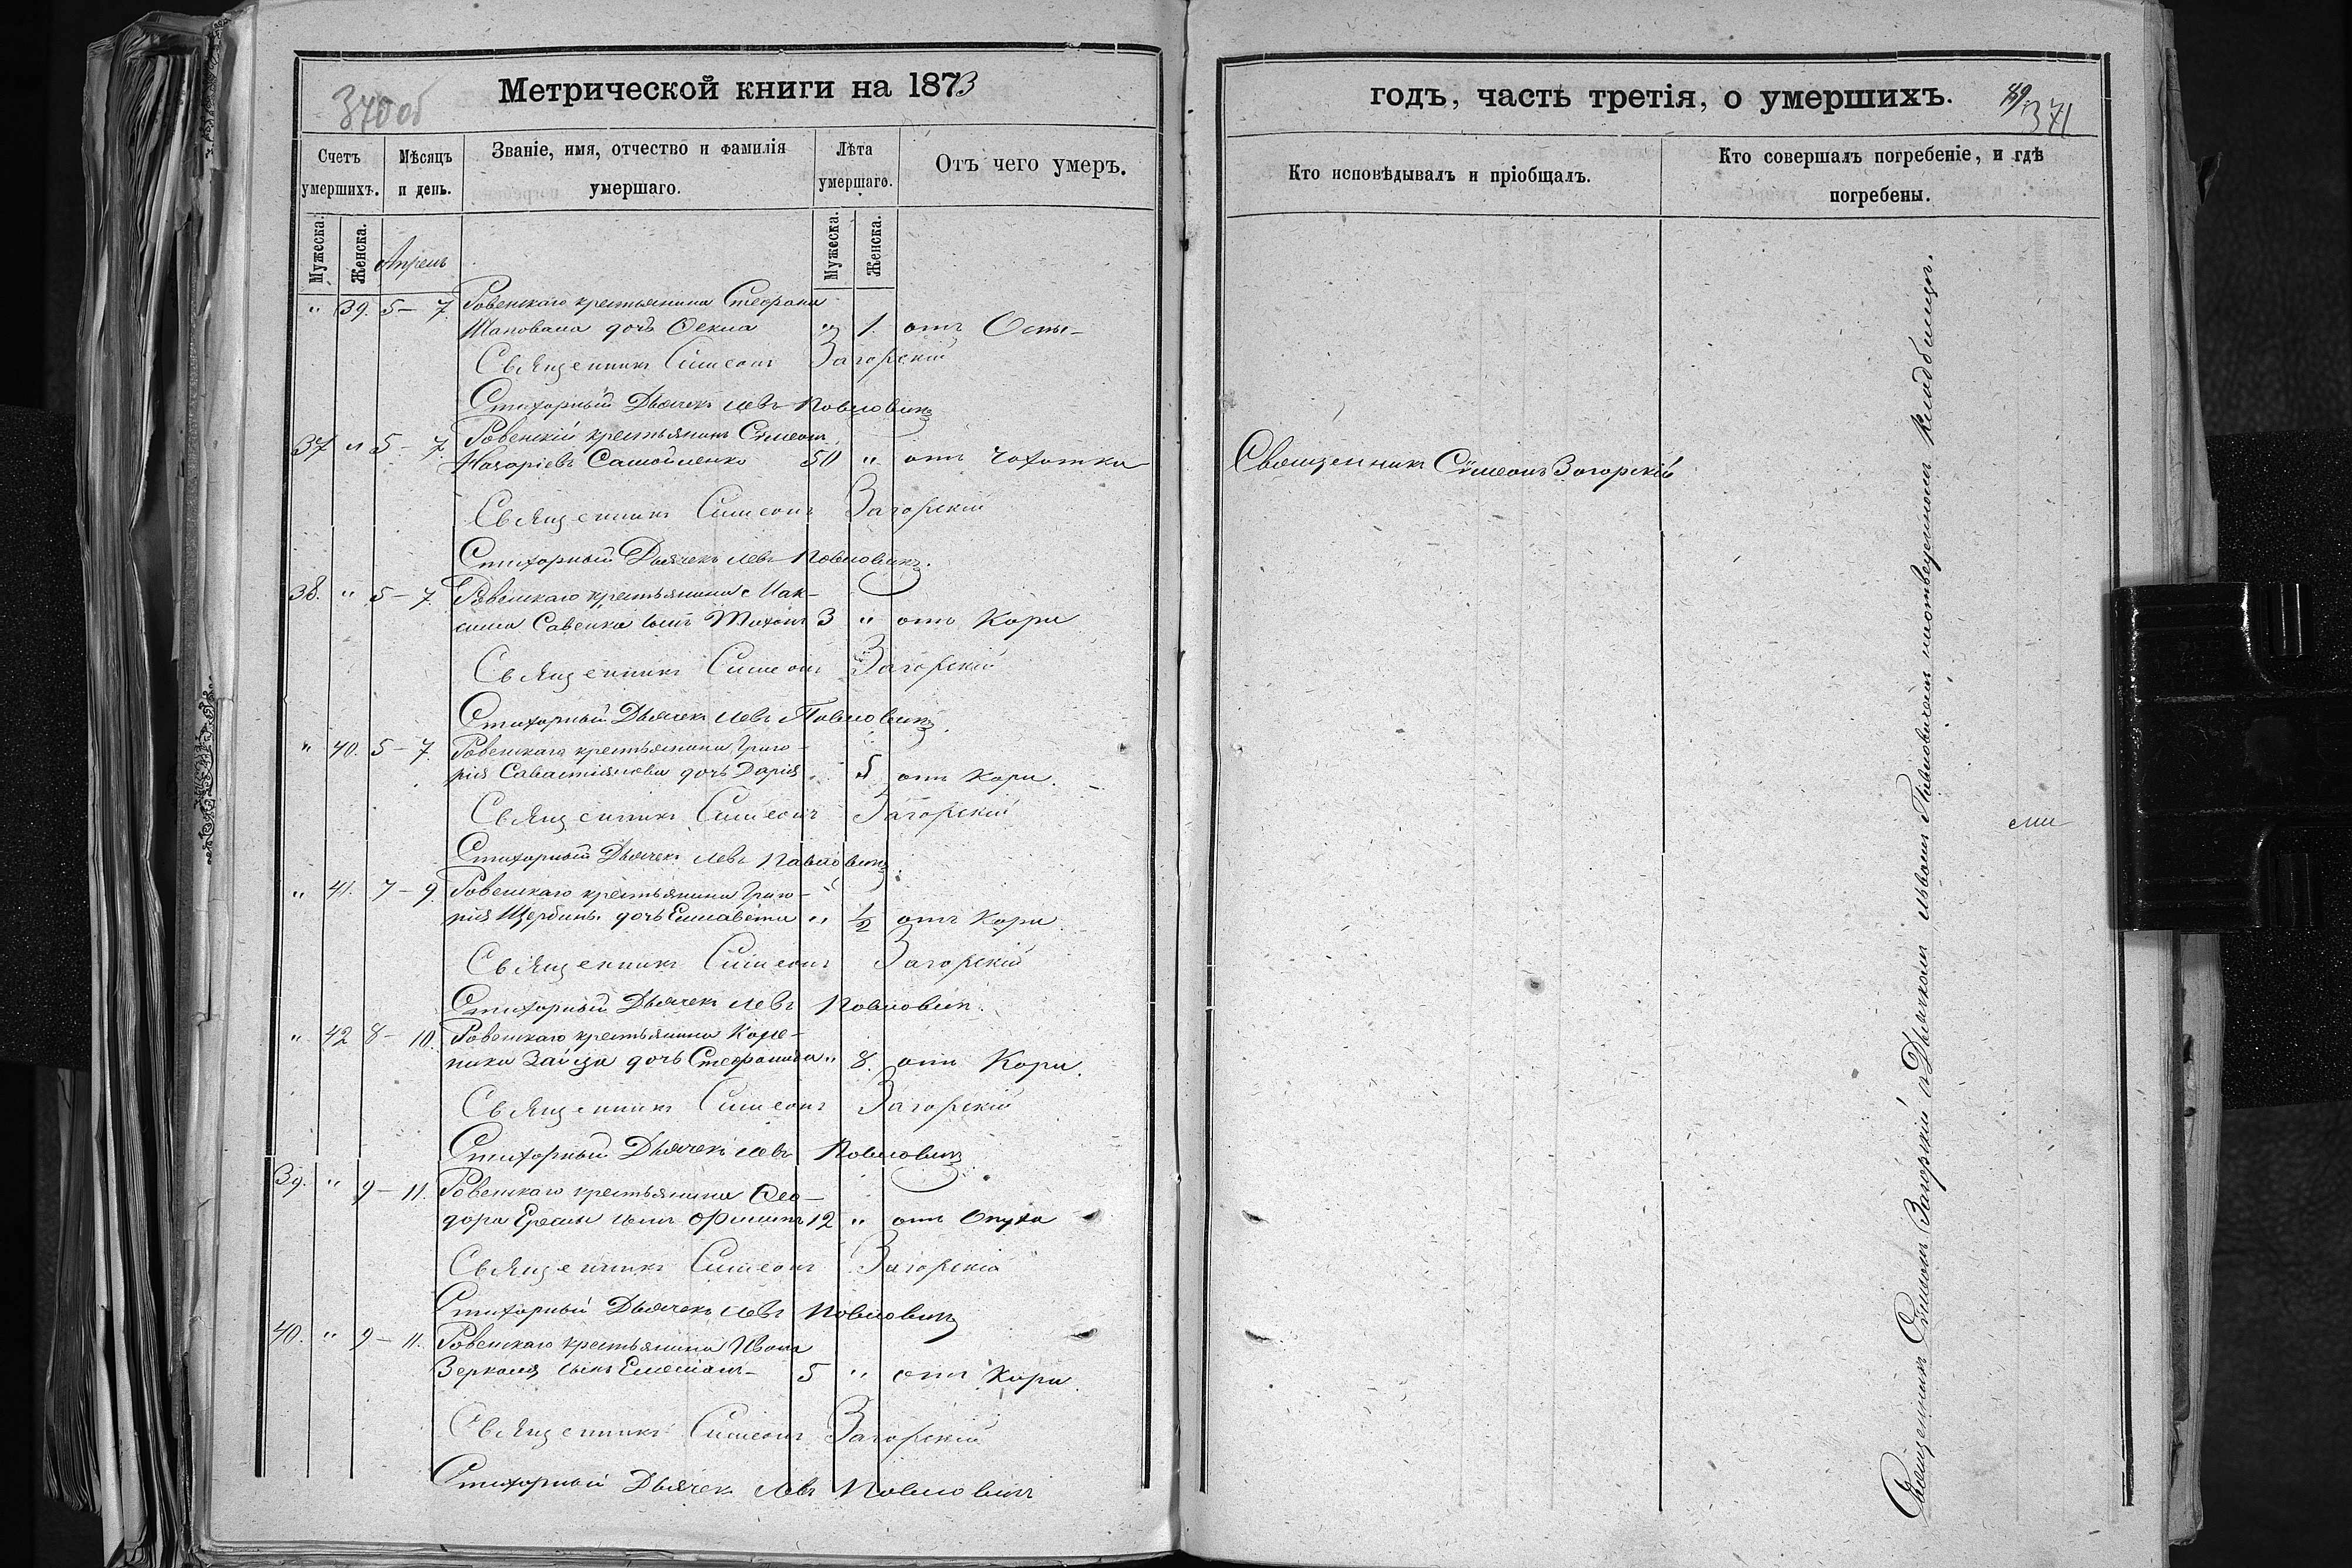 370об
Метрической книги на 1873
Счетъ умершихъ.
Мѣсяцъ и день.
Званіе, имя, отчество и фамилія умершаго.
Лѣта умершаго.
Отъ чего умеръ.
Мужеска.
Женска.
Апрель
Мужеска.
Женска.
" 39. 5 – 7. Ровенскаго крестьянина Стефана
Шаповала дочь Фекла " 1. отъ Оспы
Священникъ Симеонъ Загорскій
Стихорный Дьячекъ Левъ Павловичъ
37 " 5 – 7. Ровенскій крестьянинъ Симеонъ
Назаріевъ Самойленко 50 " отъ чахотки
Священникъ Симеонъ Загорскій
Стихорный Дьячекъ Левъ Павловичъ.
38. " 5 – 7. Ровенскаго крестьянина Мак-
сима Савенка сынъ Тихонъ 3 " отъ Кори
Священникъ Симеонъ Загорскій
Стихорный Дьячекъ Левъ Павловичъ.
" 40. 5 – 7. Ровенскаго крестьянина Григо-
рія Савастіянова дочь Дарія " 5 отъ Кори.
Священникъ Симеонъ Загорскій
Стихорный Дьячекъ Левъ Павловичъ.
" 41. 7 – 9 Ровенскаго крестьянина Григо-
рія Щербины дочь Елисавета " 1/2 отъ Кори.
Священникъ Симеонъ Загорскій
Стихорный Дьячекъ Левъ Павловичъ.
" 42 8 – 10. Ровенскаго крестьянина
Зайца дочь Стефанида " 8. отъ Кори.
Священникъ Симеонъ Загорскій
Стихорный Дьячекъ Левъ Павловичъ
39. " 9 – 11. Ровенскаго крестьянина Фео-
дора Еремы сынъ 12 " отъ Опуха
Священникъ Симеонъ Загорскій
Стихорный Дьячекъ Левъ Павловичъ
40. " 9 – 11. Ровенскаго крестьянина Ивана
Зеркаля сынъ Емеліанъ 5 " отъ Кори.
Священникъ Симеонъ Загорскій
Стихорный Дьячекъ Левъ Павловичъ
годъ, часть третія, о умершихъ.
89
371
Кто исповѣдывалъ и пріобщалъ.
Кто совершалъ погребеніе, и гдѣ погребены.
Священникъ Симеонъ Загорскій
Священникъ Симеонъ Загорскій съ Дьячкомъ Львомъ Павловичемъ на отведенномъ кладбищѣ.